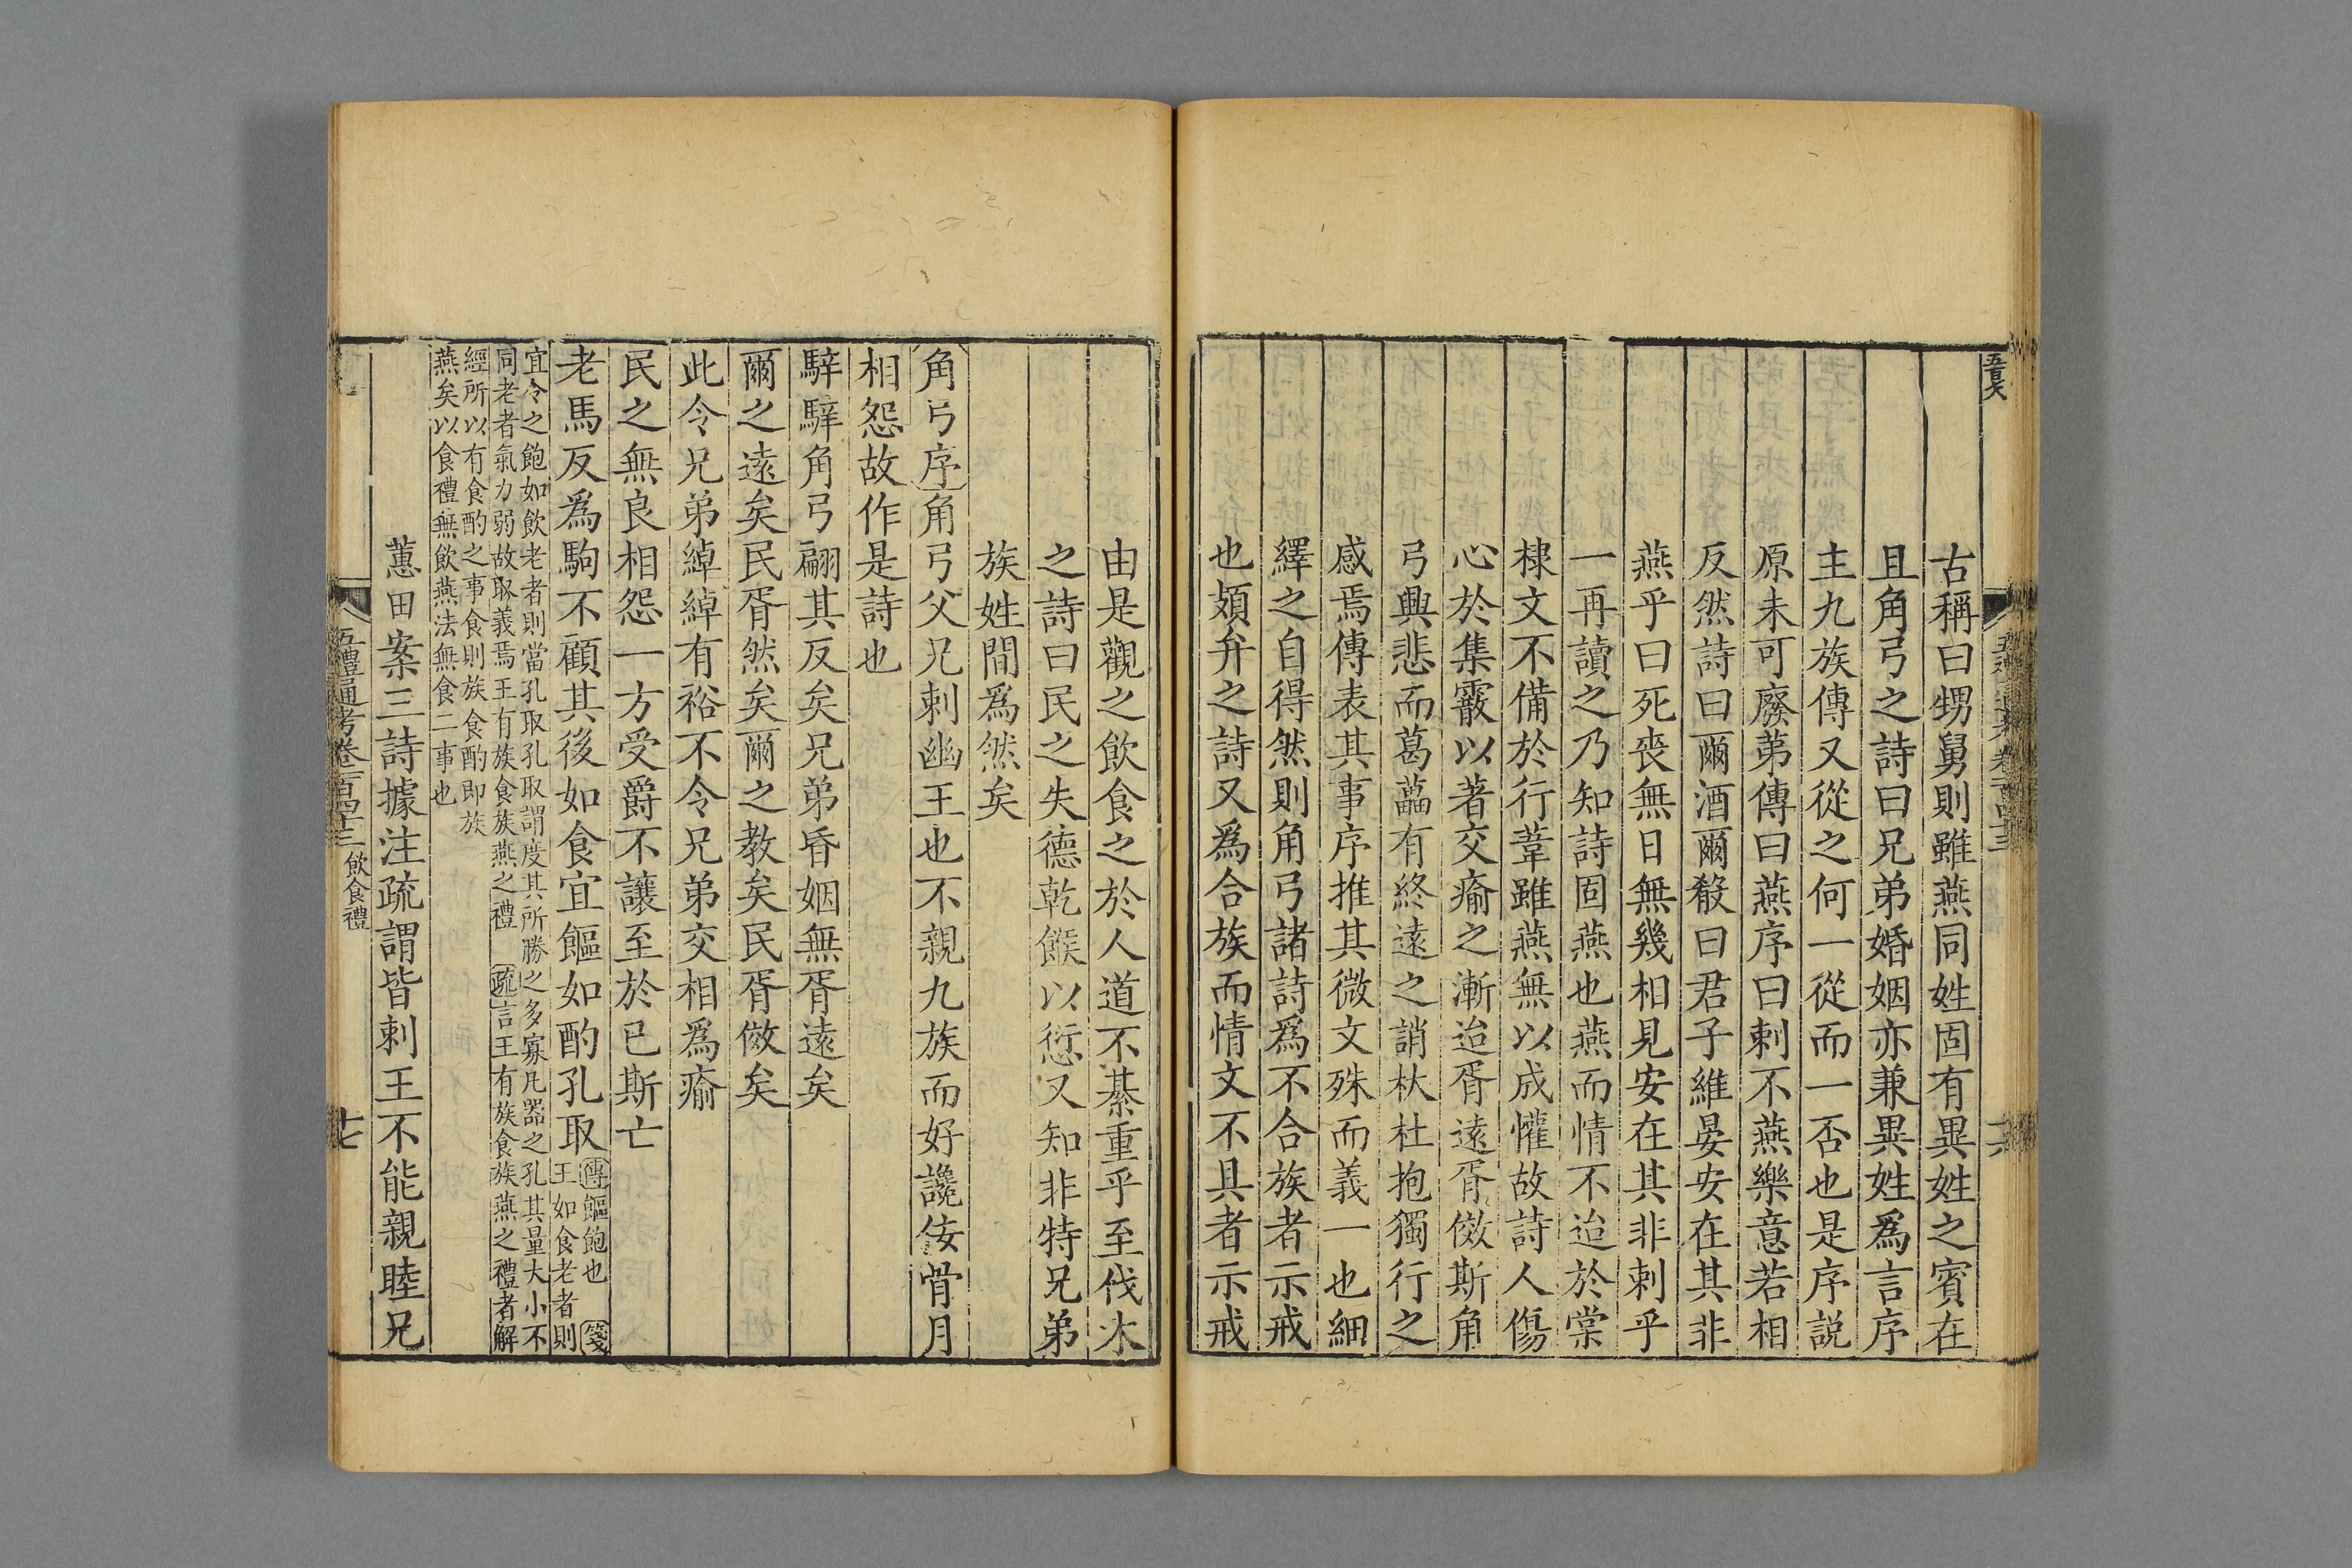 古稱曰甥舅則雖燕同姓固有異姓之賓在
且角弓之詩曰兄弟婚姻亦兼異姓爲言序
主九族傳又從之何一從而一否也是序說
原未可廢第傳曰燕序曰刺不燕樂意若相
反然詩曰爾酒爾殽曰君子維晏安在其非
燕乎曰死喪無日無幾相見安在其非刺乎
一再讀之乃知詩固燕也燕而情不迨於棠
棣文不備於行葦雖燕無以成懽故詩人傷
心於集霰以著交瘉之漸迨胥遠胥傚斯角
弓興悲而葛藟有終遠之誚杕杜抱獨行之
感焉傳表其事序推其微文殊而義一也細
繹之自得然則角弓諸詩爲不合族者示戒
也頍弁之詩又爲合族而情文不具者示戒
由是觀之飲食之於人道不綦重乎至伐木
之詩曰民之失德乾餱以愆又知非特兄弟
族姓間爲然矣
角弓序角弓父兄刺幽王也不親九族而好讒佞骨月
相怨故作是詩也
騂騂角弓翩其反矣兄弟昏姻無胥遠矣
爾之遠矣民胥然矣爾之教矣民胥傚矣
此令兄弟綽綽有裕不令兄弟交相爲瘉
民之無良相怨一方受爵不讓至於已斯亡
老馬反爲駒不顧其後如食宜饇如酌孔取
傳饇飽也 箋
王如食老者則
宜令之飽如飲老者則當孔取孔取謂度其所勝之多寡凡器之孔其量大小不
同老者氣力弱故取義焉王有族食族燕之禮 疏言王有族食族燕之禮者解
經所以有食酌之事食則族食酌即族
燕矣以食禮無飲燕法無食二事也
蕙田案三詩據注疏謂皆刺王不能親睦兄
五禮通考卷一百四十三 飲食禮
十七